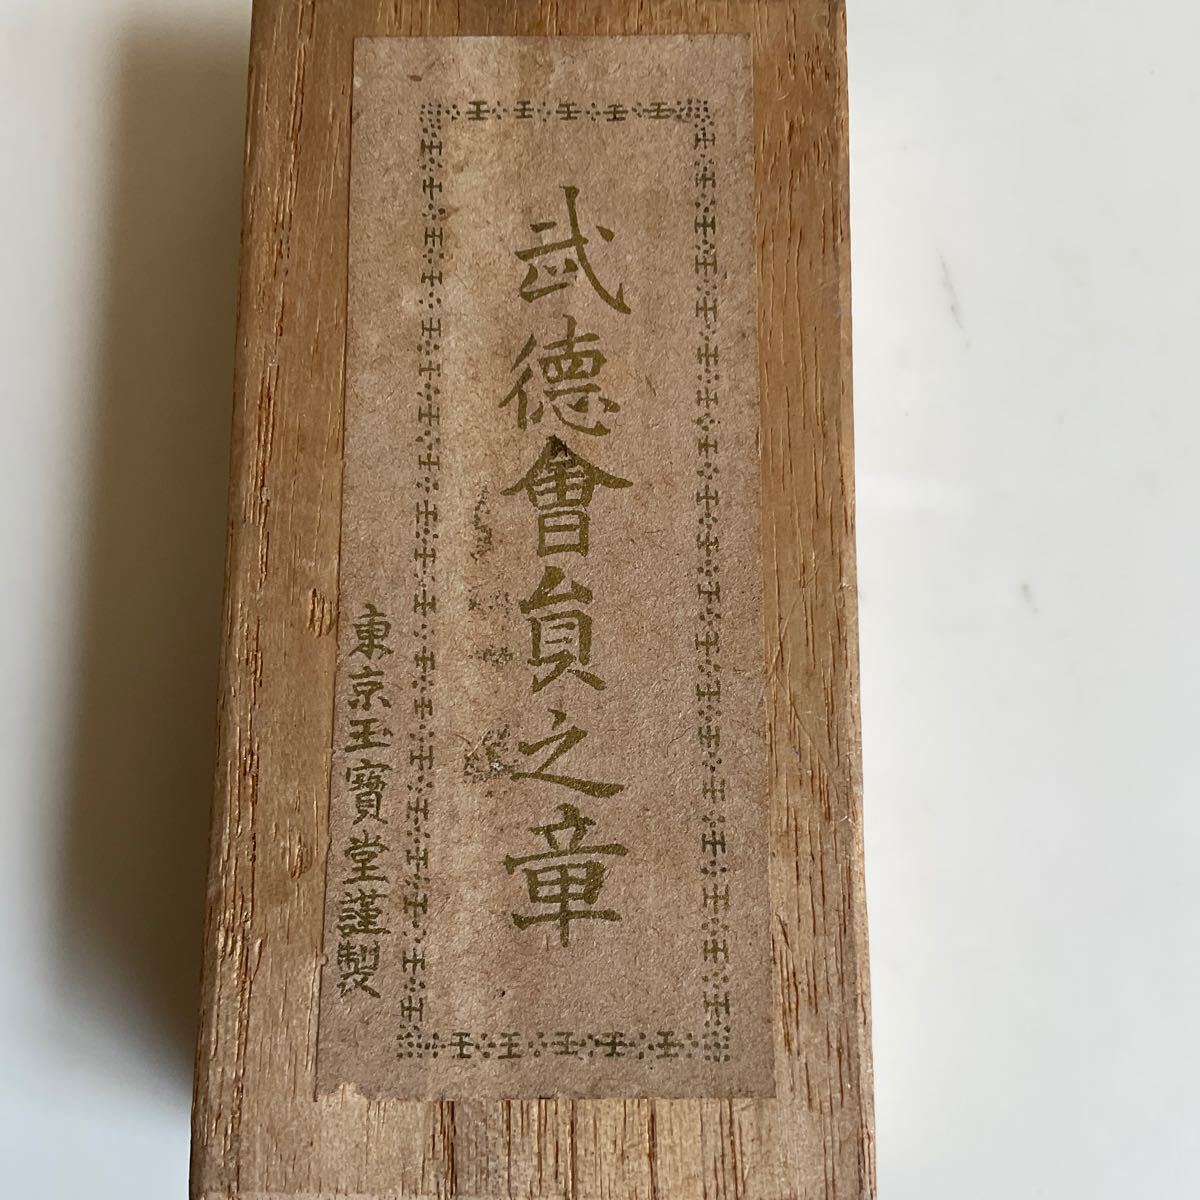 武德會員之章
東京玉寶堂謹製